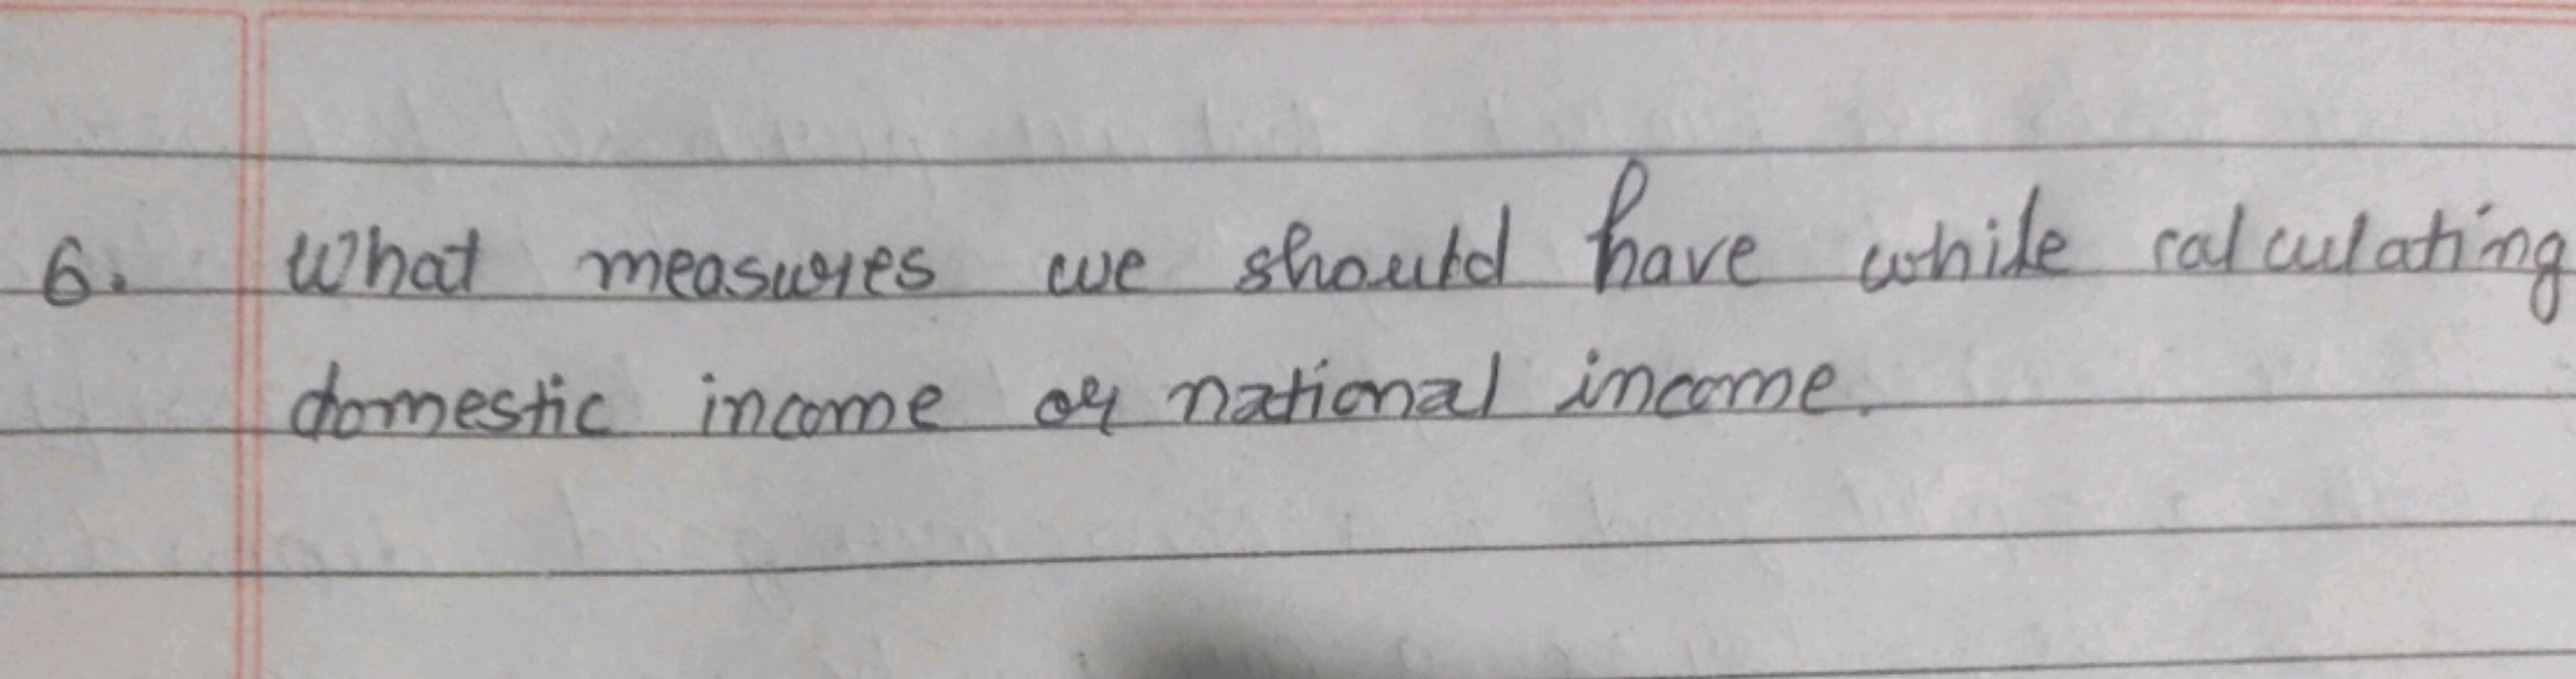 6. What measures we should have while calculating
domestic income or national income.